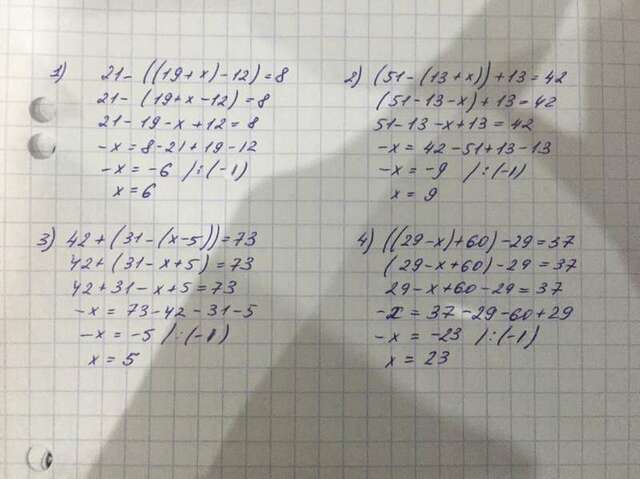 1) 21 - ((19+x) - 12) = 8
21 - (19+x-12) = 8
21 - 19 - x + 12 = 8
-x = 8 - 21 + 19 - 12
-x = -6 /:(-1)
x = 6
2) (51 - (13+x)) + 13 = 42
(51 - 13 - x) + 13 = 42
51 - 13 - x + 13 = 42
-x = 42 - 51 + 13 - 13
-x = -9 /:(-1)
x = 9
3) 42 + (31 - (x-5)) = 73
42 + (31 - x + 5) = 73
42 + 31 - x + 5 = 73
-x = 73 - 42 - 31 - 5
-x = -5 /:(-1)
x = 5
4) ((29-x) + 60) - 29 = 37
(29 - x + 60) - 29 = 37
29 - x + 60 - 29 = 37
-x = 37 - 29 - 60 + 29
-x = -23 /:(-1)
x = 23